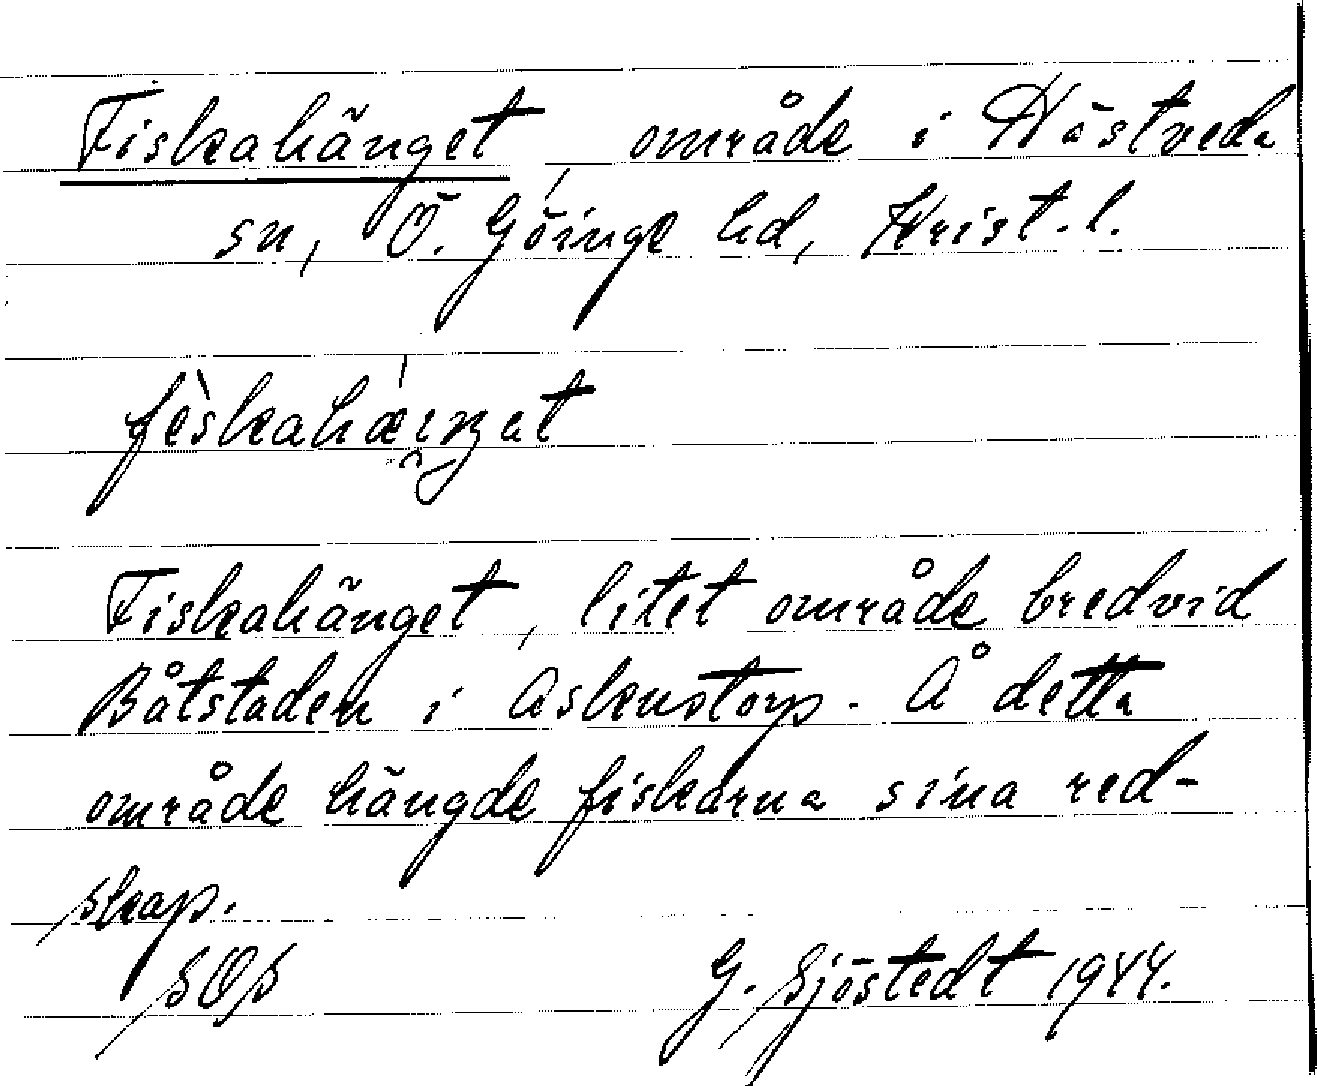 Fiskahänget, område i Hästveda
sn, Ö. Göinge hd, Krist. l.
Fiskahänget, litet område bredvid
Båtstaden i Askenstorp. Å detta
område hängde fiskarna sina red-
skap.
SOS G. Sjöstedt 1944.